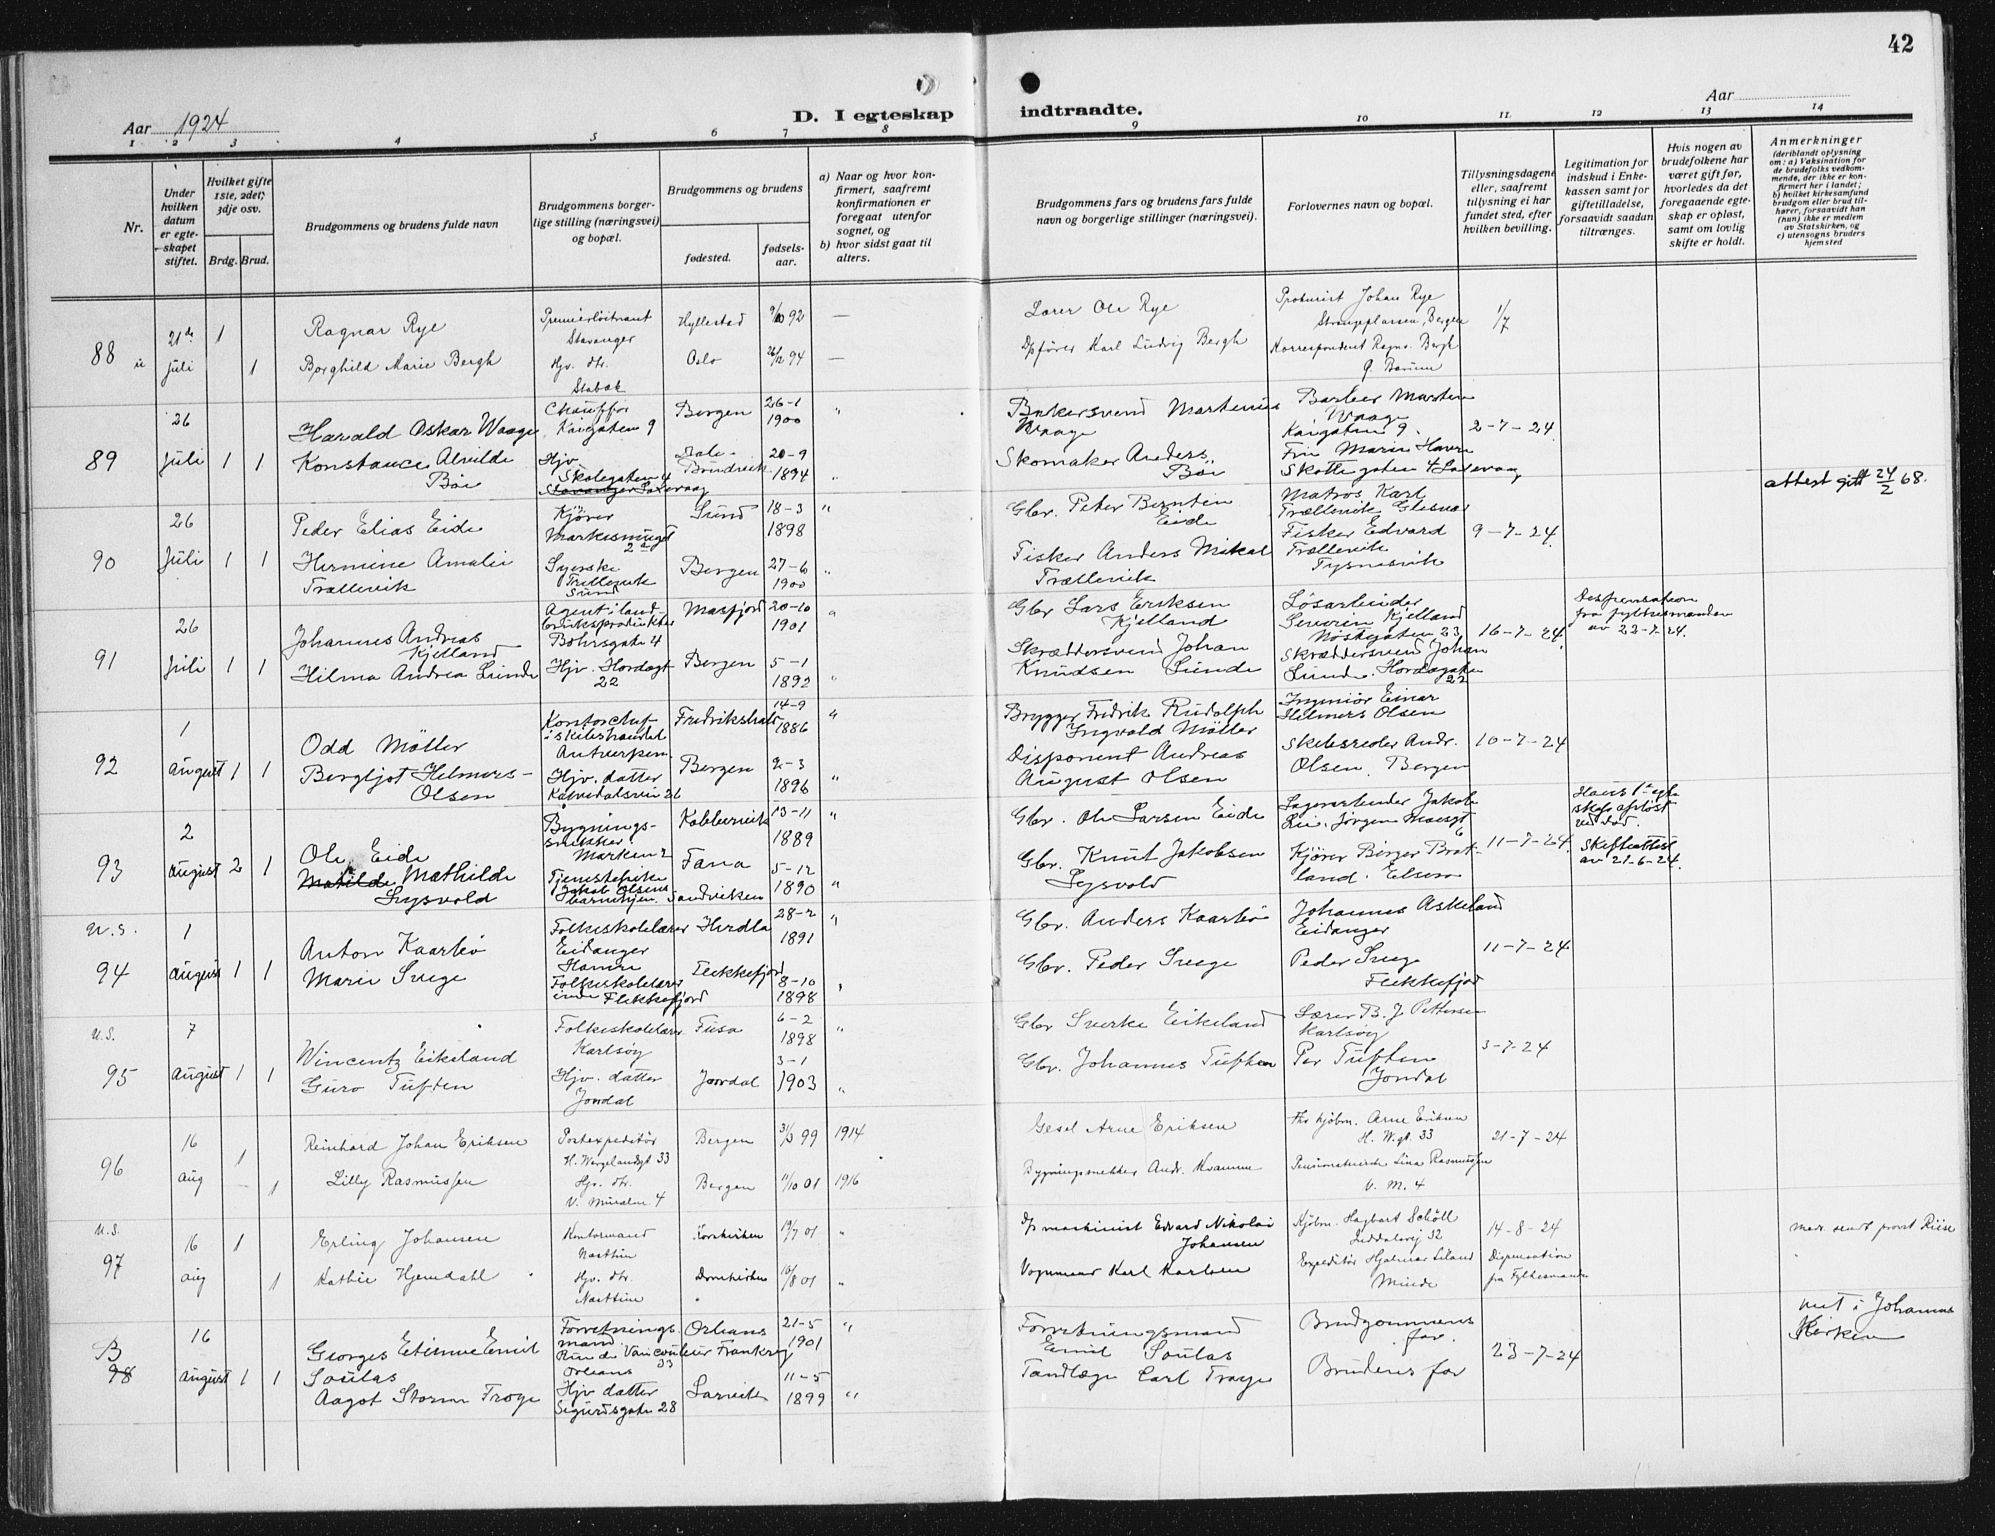 42
Aar 1924
D. I egteskap indtraadte.
Aar
1 2 3 4 5 6 7 8 9 10 11 12 13 14
Nr.
Under hvilken datum er egteskapet stiftet.
Hvilket gifte 1ste, 2det, 3dje osv.
Brdg. Brud.
Brudgommens og brudens fulde navn
Brudgommens borgerlige stilling (næringsvei) og bopæl.
Brudgommens og brudens
fødested.
fødselsaar.
a) Naar og hvor konfirmert, saafremt konfirmationen er foregaat utenfor sognet, og
b) hvor sidst gaat til alters.
Brudgommens fars og brudens fars fulde navn og borgerlige stillinger (næringsvei).
Forlovernes navn og bopæl.
Tillysningsdagene eller, saafremt tillysning ei har fundet sted, efter hvilken bevilling.
Legitimation for indskud i Enkekassen samt for giftetilladelse, forsaavidt saadan tiltrænges.
Hvis nogen av brudefolkene har været gift før, hvorledes da det foregaaende egteskap er opløst, samt om lovlig skifte er holdt.
Anmerkninger
(deriblandt oplysning om: a) Vaksination for de brudefolks vedkommende, der ikke er konfirmert her i landet; b) hvilket kirkesamfund brudgom eller brud tilhører, forsaavidt han (hun) ikke er medlem av Statskirken, og c) utensogns bruders hjemsted
88 21de juli 1 Ragnar Rye Premierløitnant Stavanger Hyllestad 92 — Lærer Ole Rye Prokurist Johan Rye Strangeplassen, Bergen 1/7
1 Borghild Marie Bergh Hjv. dtr. Stabæk Oslo 94 — D/p fører Karl Ludvig Bergh Korrespondent Ragnv. Bergh Bærum
89 26 Juli 1 1 Harald Oskar Waage Chauffør Kaigaten 9 Bergen 26-1 1900 " Bakersvend Martinius Waage Barber Morten Waage Kaigaten 9. 2-7-24
Konstance Alvilde Bøe Hjv. Skolegaten 4 Laxevaag Dale- Bruvik 20-9 1894 " Skomaker Anders Bøe Frk Marie Skottegaten 4 Laxevaag
attest gift 24/2 68.
90 26 Juli 1 1 Peder Elias Eide Kjører Marksmuget Sund 18-3 1898 " Gbr. Peter Berntin Eide Matros Karl Trællevik Glesvær 9-7-24
Hermine Amalie Trællevik Syerske Trællevik Sund Bergen 27-6 1900 " Fisker Anders Mikal Trællevik Fisker Edvard Trællevik Tysnesvik
91 26 Juli 1 1 Johannes Andreas Kjelland Agent i landbruksprodukter Bøhrsgate 4 Masfjord 20-10 1901 " Gbr Lars Eriksen Kjelland Løsarbeider Severin Kjelland Nøstegaten 23 16-7-24 Dispensation fra fylkesmanden av 22-7-24.
Hilma Andrea Lunde Hjv. Hordagt 22 Bergen 5-1 1892 " Skræddersvend Johan Knudsen Lunde Skræddersvend Johan Lunde. Hordagaten 22
92 1 August 1 1 Odd Møller Kontorchef i skibshandel Antwerpen Fredrikshald 14-9 1886 " Brygger Fredrik Rudolph Ingvald Møller Ingeniør Einar Helmers Olsen 10-7-24
Bergljot Helmers-Olsen Hjv. datter Kalvedalsvei 26 Bergen 2-3 1896 " Disponent Andreas August Olsen Skibsreder Andr. Olsen Bergen
93 2 August 2 1 Ole Eide Bygningssnekker Marken 2 Kobbervik 13-11 1889 " Gbr. Ole Larsen Eide Lagerarbeider Jakob Lie. Jørgen Moesgt 6 11-7-24 Hans 1ste egteskap opløst ved død. Skifteattest av 21-6-24
Matilde Mathilde Lysvold Tjenestepike Jakob Olsens barnehjem. Sandviken Fana 5-12 1890 " Gbr. Knut Jakobsen Lysvold Kjører Birger Bratland. Elsero
u.s. 94 1 August 1 1 Anton Kaarbø Folkeskolelærer Eidanger Herdla 28-2 1891 " Gbr. Anders Kaarbø Johannes Askeland Eidanger 11-7-24
Marie Svege Folkeskolelærerinde Flekkefjord Flekkefjord 8-10 1898 " Gbr. Peder Svege Peder Svege Flekkefjord
u.s. 95 7 August 1 1 Wincentz Eikeland Folkeskolelærer Karlsøy Fusa 6-2 1898 " Gbr Sverke Eikeland Lærer B. J. Pettersen Karlsøy 3-7-24
Guro Tuften Hjv. datter Jondal Jondal 3-1 1903 " Gbr. Johannes Tuften Per Tuften Jondal
96 16 Aug 1 Reinhard Johan Eriksen Postexpeditør H. Wergelandsgt 33 Bergen 99 1914 Gesel Arne Eriksen Kjøbm. Arne Eriksen H. W. gt. 33 21-7-24
1 Lilly Rasmussen Hjv. dtr. V. Muralm 4 Bergen 11/10 01 1916 Bygningssnekker Andr. Kvamme Lina Rasmussen V. M. 4
u.s. 97 16 Aug 1 Erling Johansen Kontormand Næsttun Korskirken 19/7 01 " D/p maskinist Edvard Nikolai Johansen Kjøbm. Hagbart Schøll 32 14-8-24
1 Kathie Hjemdahl Hjv. dtr. Næsttun Domkirken 16/8 01 " Vognmand Karl Karlsen Expeditør Hjalmar Leland Minde Dispensation fra Fylkesmanden
Med. sendt provst Riise
B 98 16 August 1 1 Georges Etienne Emil Soulas Forretningsmand Rue de Vaucouleur 33 Orleans Orleans Frankrig 21-5 1901 " Forretningsmand Emil Soulas Brudgommens far 23-7-24
Aagot Storm Troye Hjv datter Sigurdsgate 28 Larvik 11-5 1899 " Tandlæge Carl Troye Brudens far
viet i Johannes Kirken